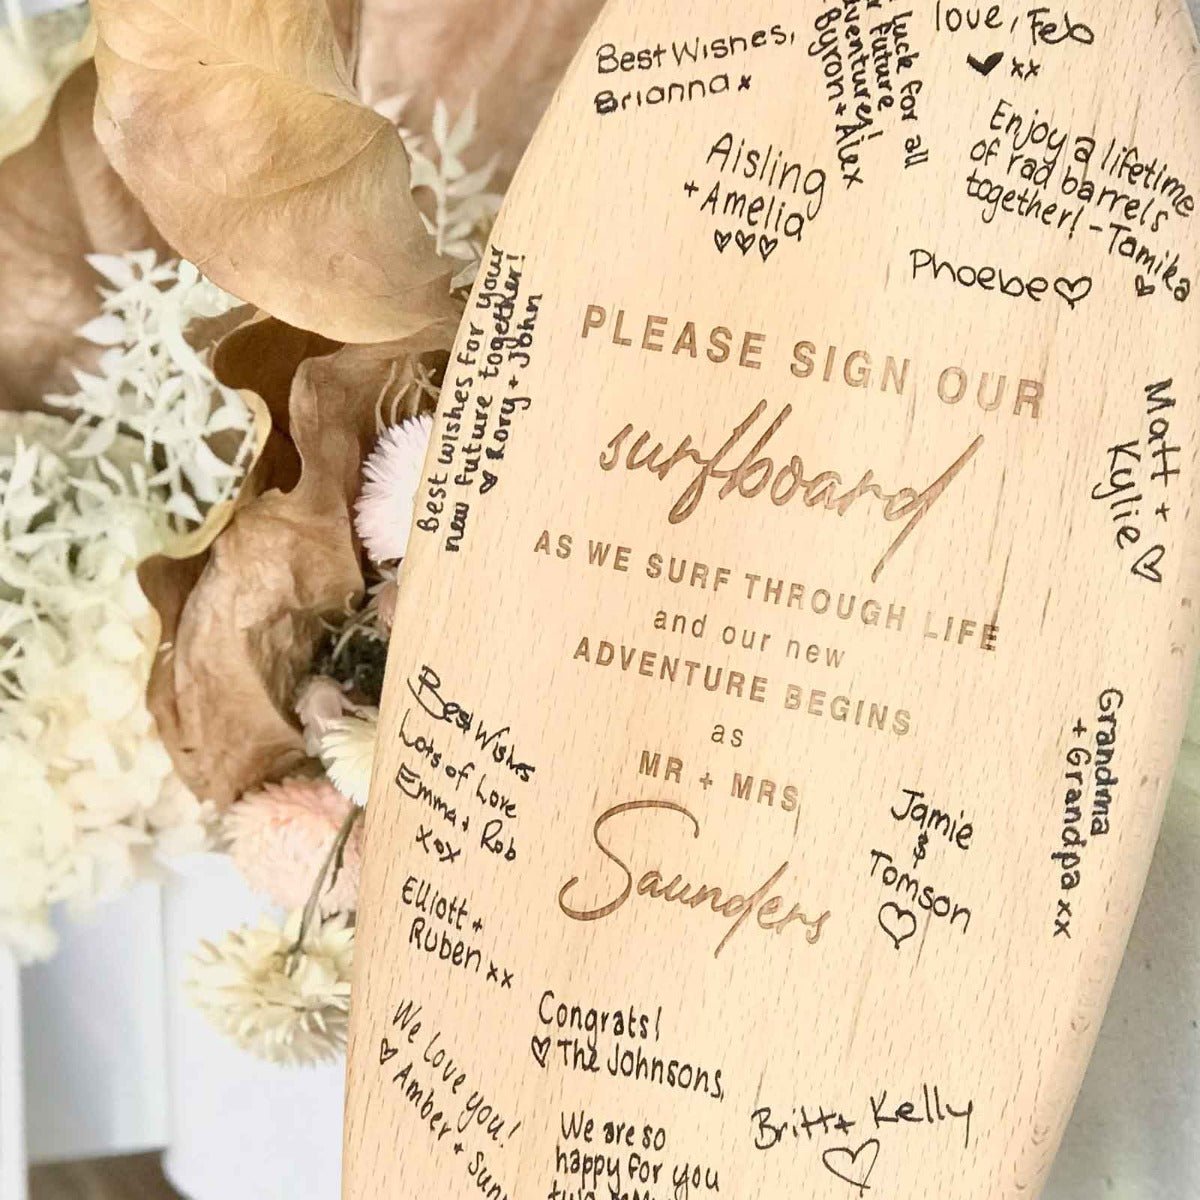 Best Wishes,
Brianna x
luck for all
future
adventures!
Byron + Alex
love, Feb
♥ xx
Aisling
+ Amelia
♡♡♡
Enjoy a lifetime
of rad barrels
together! - Tamika
♡
Phoebe ♡
Best wishes for your
new future together!
♡ Rory + John
PLEASE SIGN OUR
surfboard
AS WE SURF THROUGH LIFE
and our new
ADVENTURE BEGINS
as
MR + MRS
Saunders
Matt +
Kylie ♡
Grandma
+ Grandpa xx
Jamie
&
Tomson
♡
Best Wishes
Lots of Love
Emma + Rob
xox
Elliott +
Ruben xx
We love you!
♡ Amber +
Congrats!
♡ The Johnsons,
We are so
happy for you
Britt + Kelly
♡